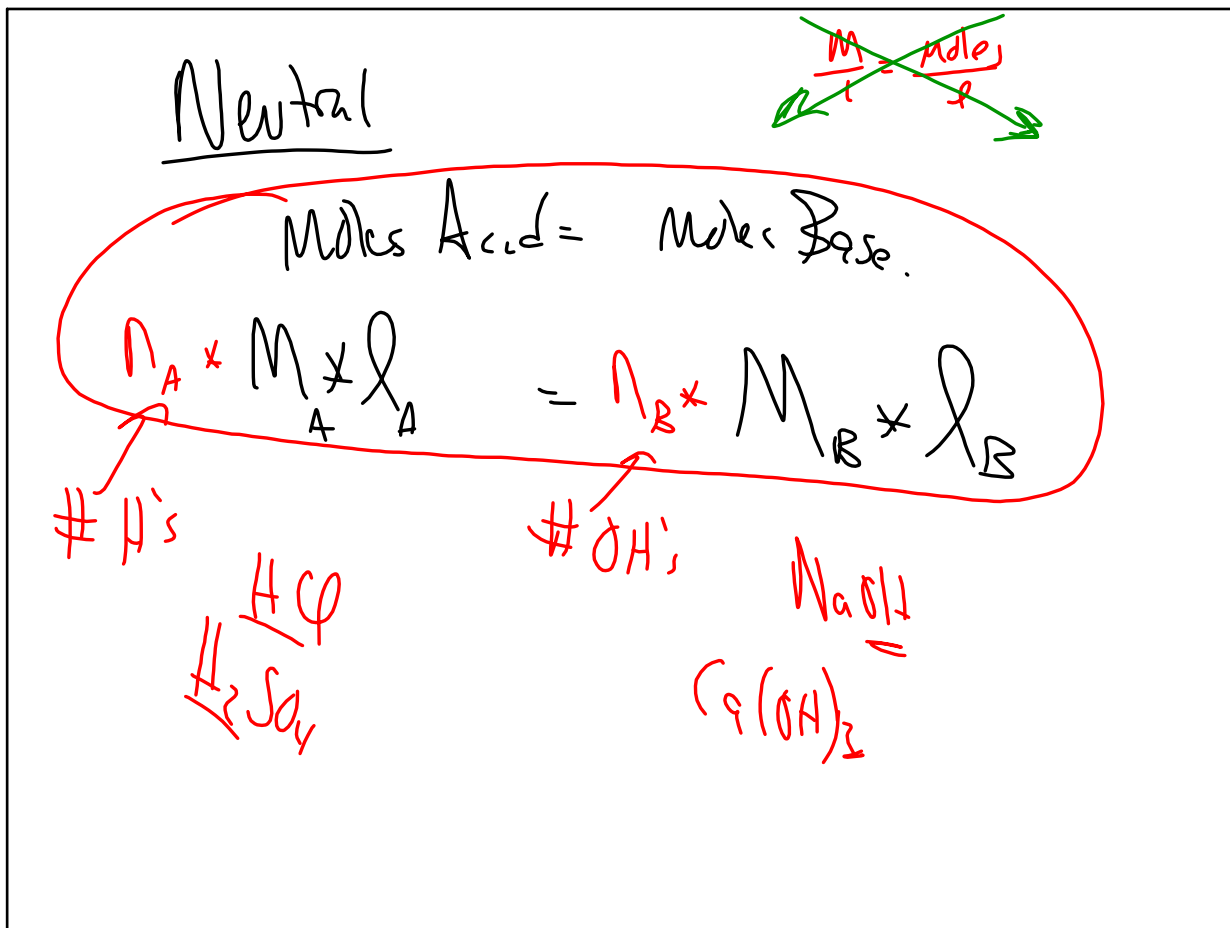 Neutral
M/1 = moles/l
Moles Acid = Moles Base.
n_A * M_A * l_A = n_B * M_B * l_B
# H's
# OH's
HCl
NaOH
H₂SO₄
Ca(OH)₂